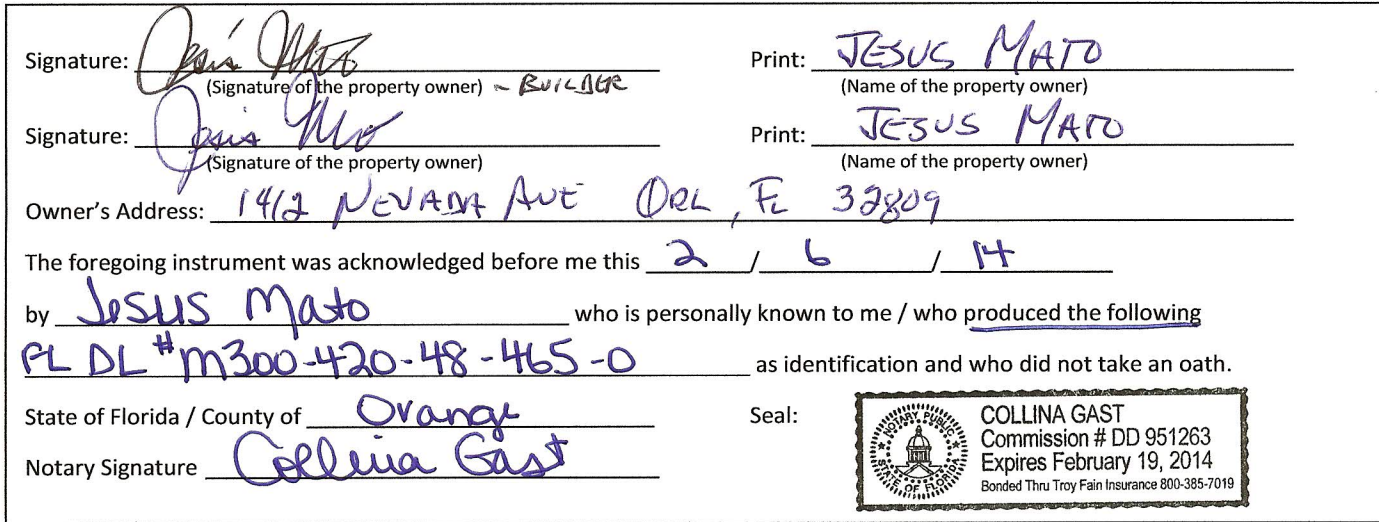 Signature: Jesús Mato Print: JESUS MATO
(Signature of the property owner) - BUILDER (Name of the property owner)
Signature: Jesús Mato Print: JESUS MATO
(Signature of the property owner) (Name of the property owner)
Owner's Address: 1412 NEVADA AVE ORL, FL 32809
The foregoing instrument was acknowledged before me this 2 / 6 / 14
by Jesus Mato who is personally known to me / who produced the following
FL DL #M300-420-48-465-0 as identification and who did not take an oath.
State of Florida / County of Orange Seal:
Notary Signature Collina Gast
NOTARY PUBLIC
STATE OF FLORIDA
COLLINA GAST
Commission # DD 951263
Expires February 19, 2014
Bonded Thru Troy Fain Insurance 800-385-7019